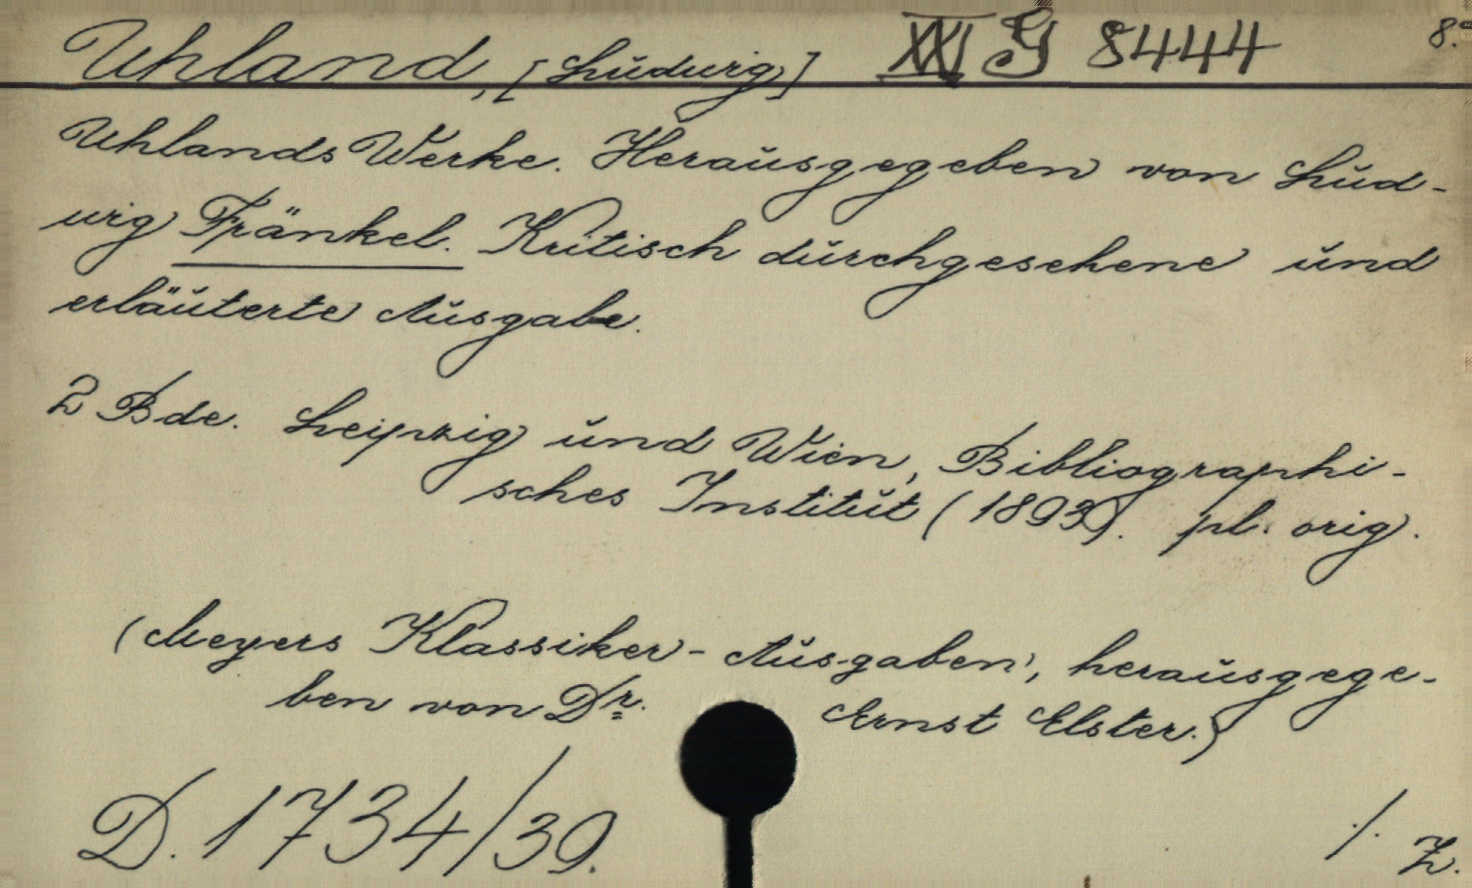 Uhland, [Ludwig] XXI G 8444 8.°
Uhlands Werke. Herausgegeben von Lud-
wig Fränkel. Kritisch durchgesehene und
erläuterte Ausgabe.
2 Bde. Leipzig und Wien, Bibliographi-
sches Institut (1893). pl. orig.
(Meyers Klassiker-Ausgaben, herausgege-
ben von Dr. Ernst Elster.)
D. 1734/39.
./. Z.